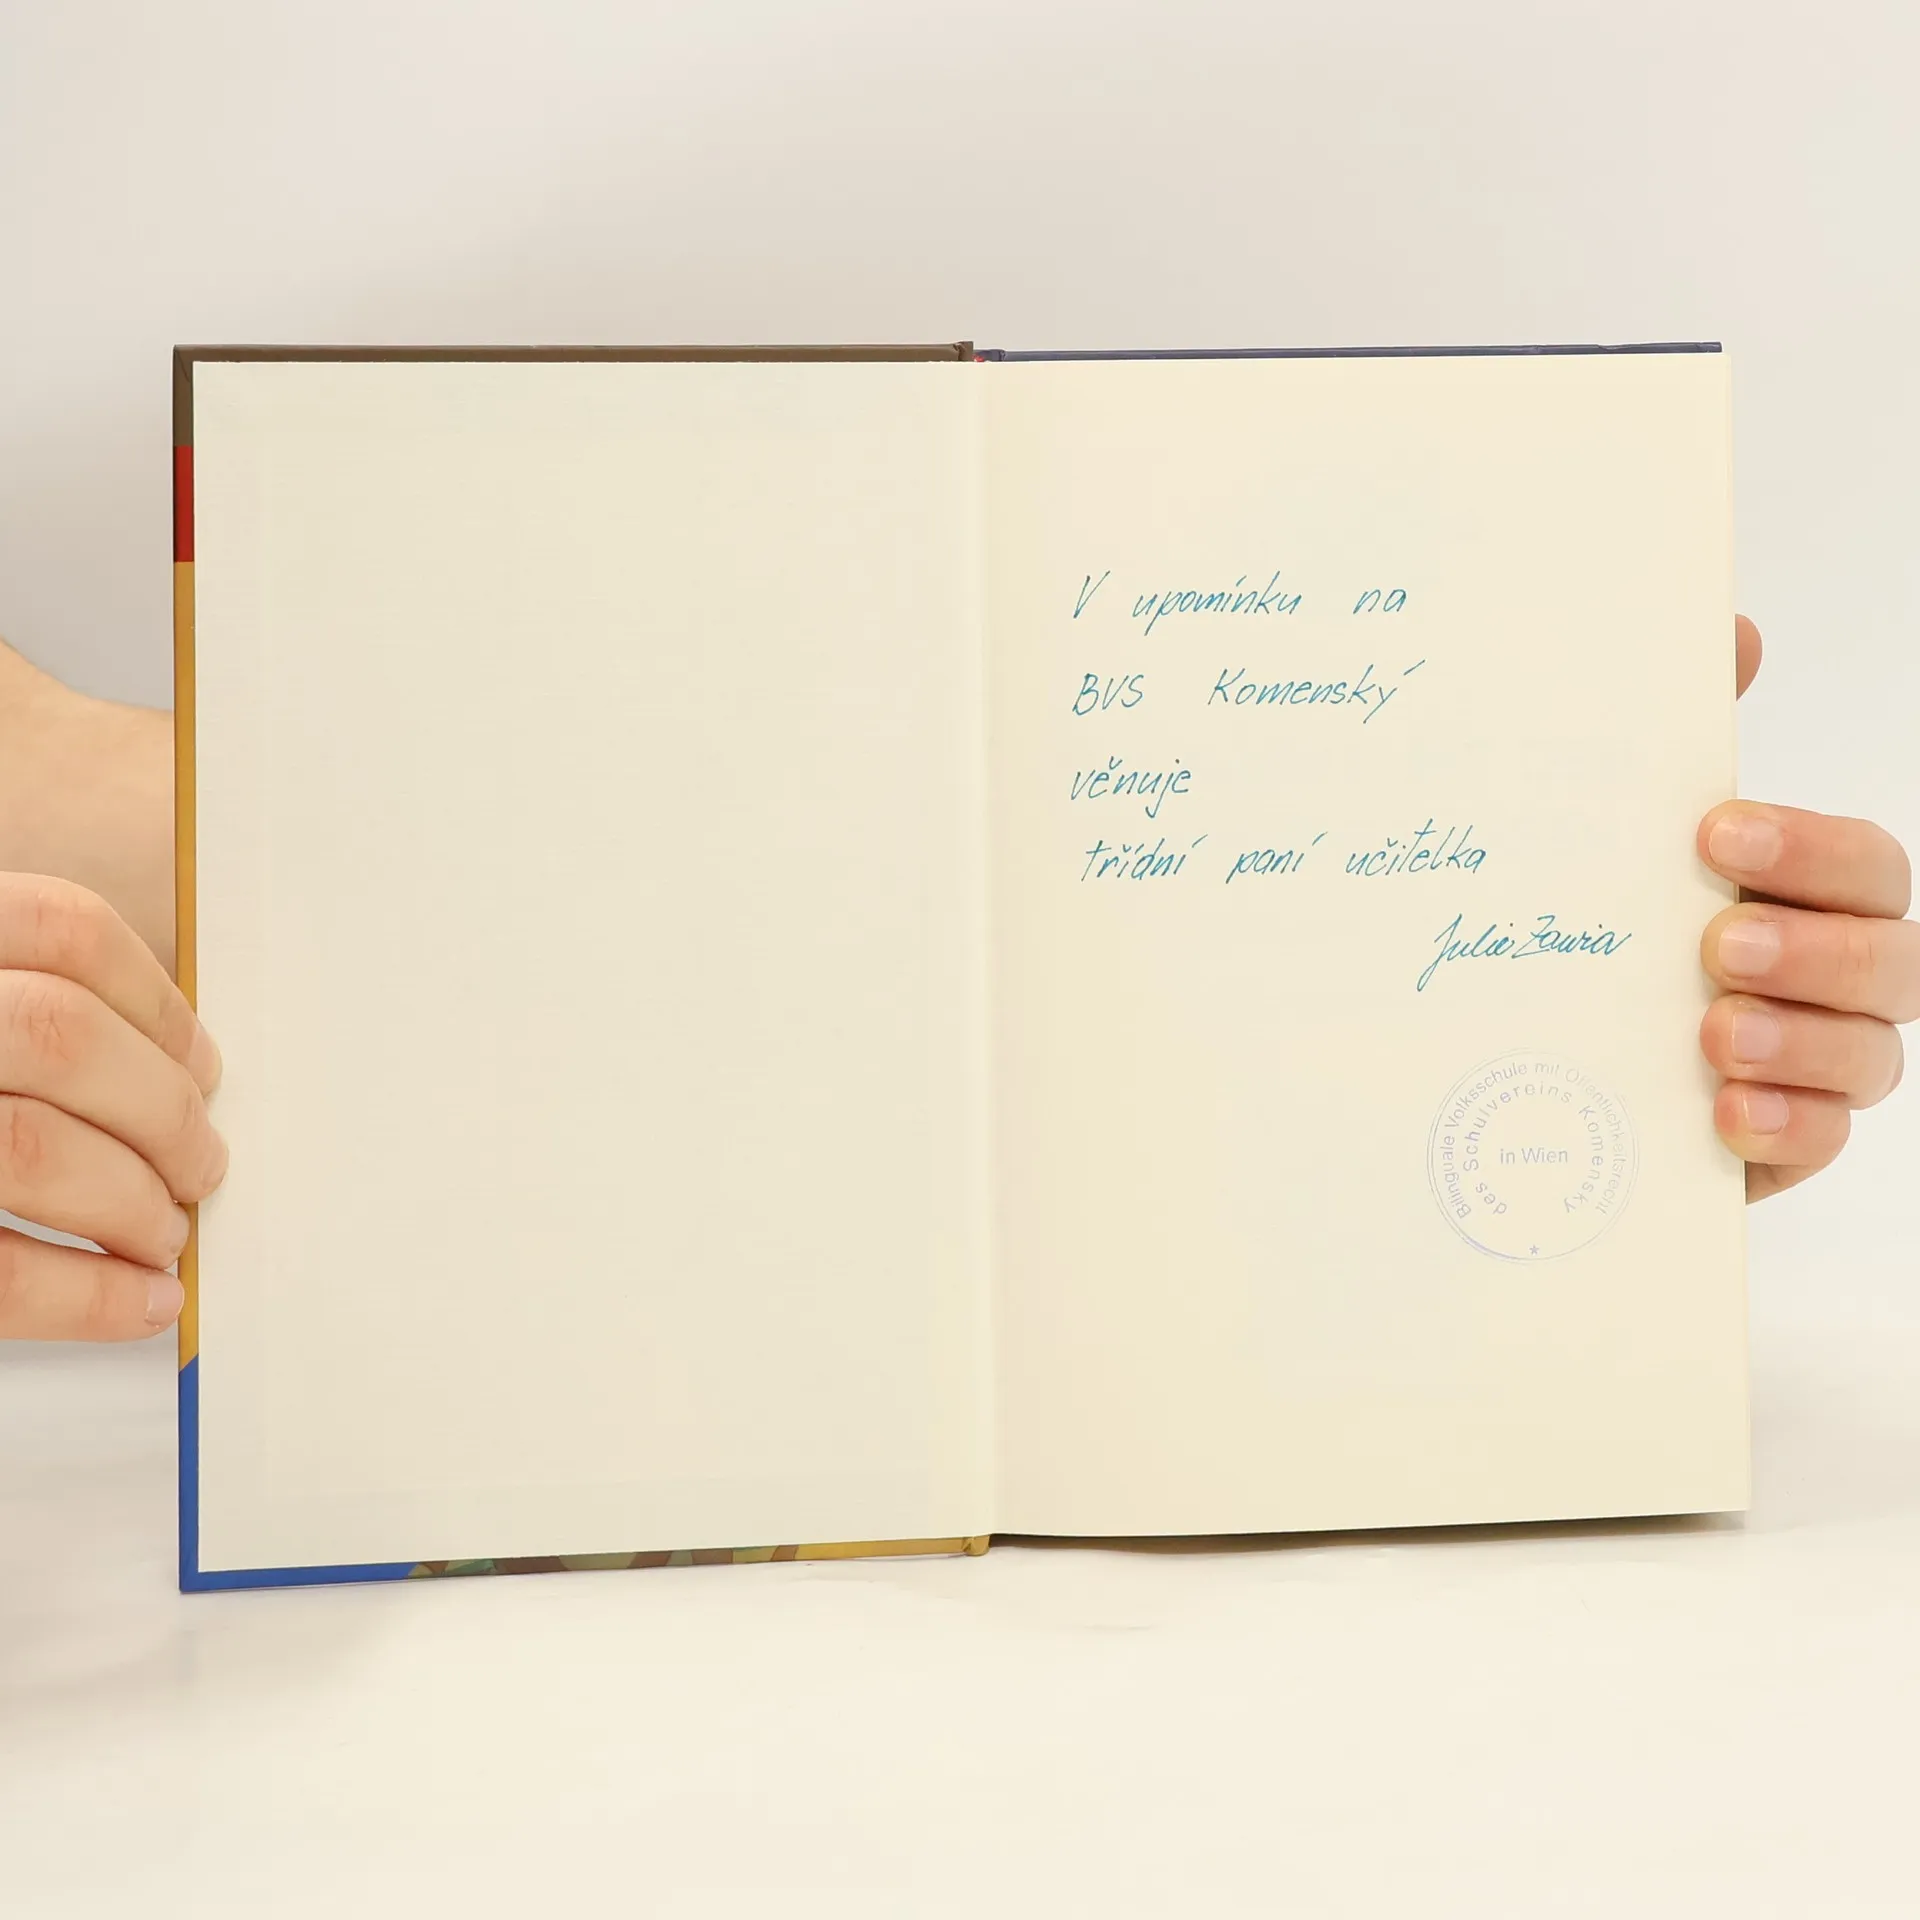 V upomínku na
BVS Komenský
věnuje
třídní paní učitelka
Julie Zawia
Bilinguale Volksschule mit Öffentlichkeitsrecht
des Schulvereins Komensky
in Wien